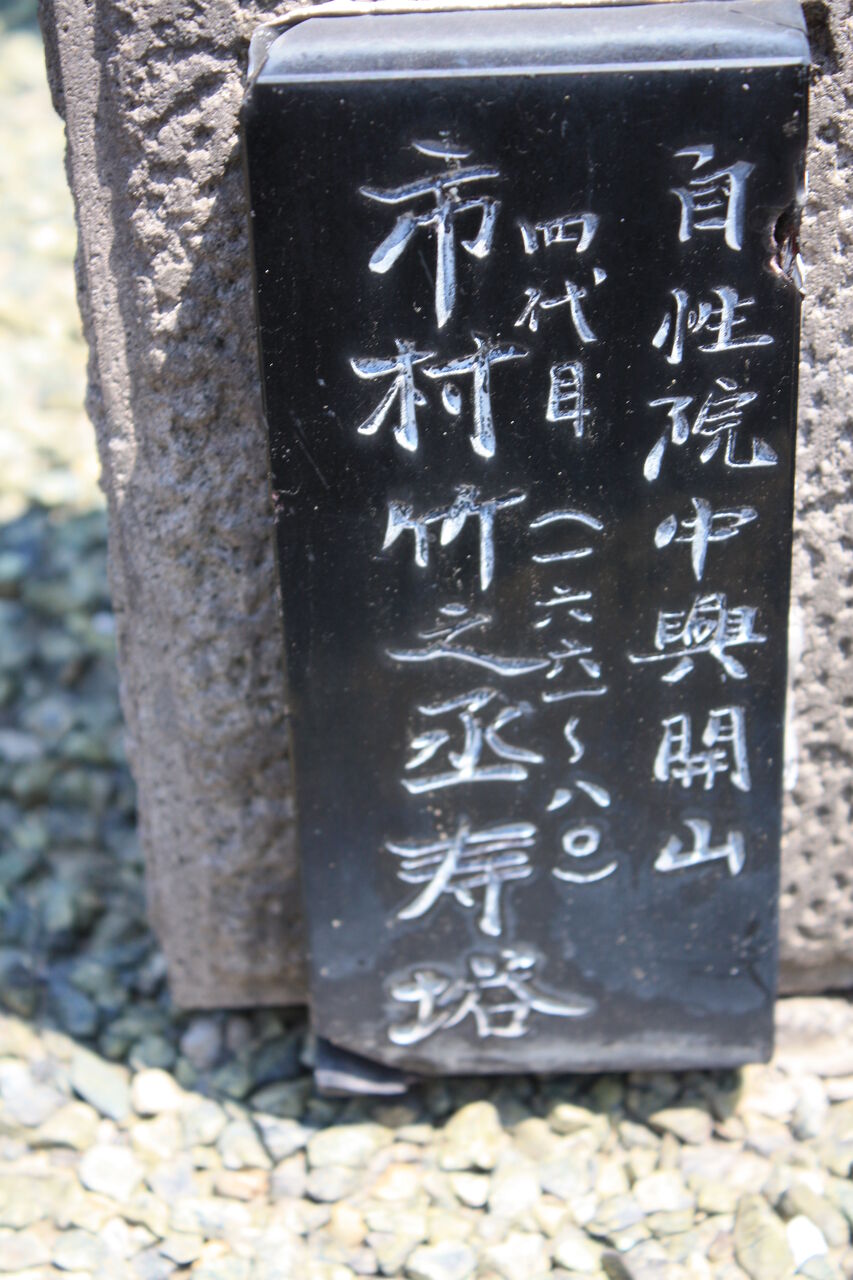 自性院中興開山
四代目(一六六一〜八〇)
市村竹之丞寿塔